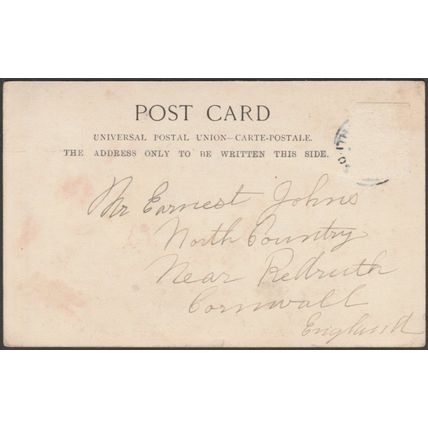 POST CARD
UNIVERSAL POSTAL UNION—CARTE-POSTALE.
THE ADDRESS ONLY TO BE WRITTEN THIS SIDE.
Mr Earnest Johns
North Country
Near Redruth
Cornwall
England